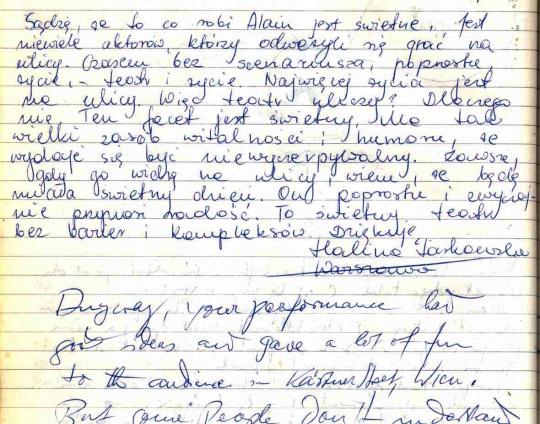 Sądzę, że to co robi Alain jest świetne. Jest
niewiele aktorów, którzy odważyli się grać na
ulicy. Czasem bez scenariusza, poprostu,
życie, - teatr i życie. Najwięcej życia jest
na ulicy. Więc teatr uliczny? Dlaczego
nie. Ten facet jest świetny. Ma tak
wielki zasób witalności i humoru, że
wydaje się być niewyczerpywalny. Zawsze,
gdy go widzę na ulicy, wiem, że będę
miała świetny dzień. On poprostu zwyczaj-
nie przynosi radość. To świetny teatr
bez barier i kompleksów. Dziękuję
Halina Jaskowska
Warszawa
your performance had
good ideas and gave a lot of fun
to the audience in Kärtnerstreet, Wien.
But some People don't understand